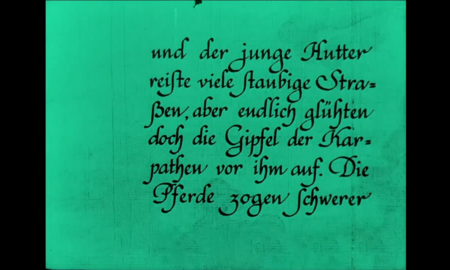 und der junge Hutter
reiſte viele ſtaubige Stra=
ßen, aber endlich glühten
doch die Gipfel der Kar=
pathen vor ihm auf. Die
Pferde zogen ſchwerer